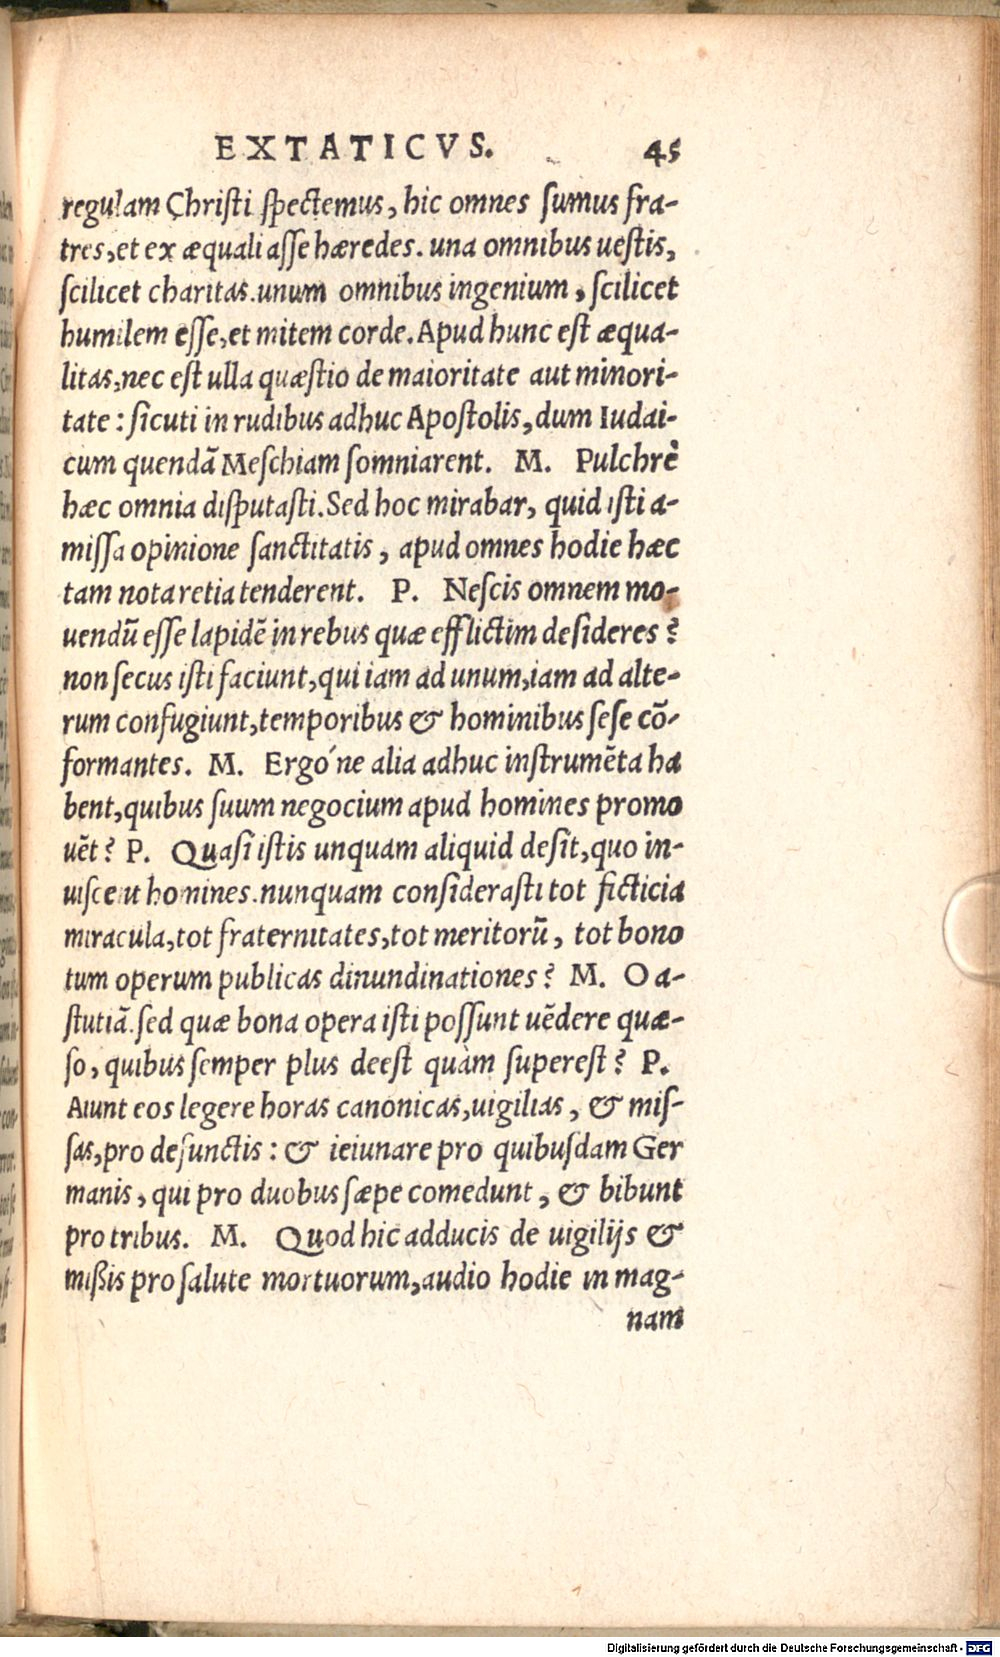 EXTATICVS. 45
regulam Christi spectemus, hic omnes sumus fra-
tres, et ex æquali asse hæredes. una omnibus uestis,
scilicet charitas. unum omnibus ingenium, scilicet
humilem esse, et mitem corde. Apud hunc est æqua-
litas, nec est ulla quæstio de maioritate aut minori-
tate: sicuti in rudibus adhuc Apostolis, dum Iudai-
cum quendã Meschiam somniarent. M. Pulchrè
hæc omnia disputasti. Sed hoc mirabar, quid isti a-
missa opinione sanctitatis, apud omnes hodie hæc
tam nota retia tenderent. P. Nescis omnem mo-
uendũ esse lapidẽ in rebus quæ efflictim desideres?
non secus isti faciunt, qui iam ad unum, iam ad alte-
rum confugiunt, temporibus & hominibus sese cõ-
formantes. M. Ergó ne alia adhuc instrumẽta ha
bent, quibus suum negocium apud homines promo
uẽt? P. Quasi istis unquam aliquid desit, quo in-
uiscent homines. nunquam considerasti tot ficticia
miracula, tot fraternitates, tot meritorũ, tot bono
tum operum publicas dinundinationes? M. O a-
stutiã. sed quæ bona opera isti possunt uẽdere quæ-
so, quibus semper plus deest quàm superest? P.
Aiunt eos legere horas canonicas, uigilias, & mis-
sas, pro defunctis: & ieiunare pro quibusdam Ger
manis, qui pro duobus sæpe comedunt, & bibunt
pro tribus. M. Quod hic adducis de uigilijs &
mißis pro salute mortuorum, audio hodie in mag-
nam
Digitalisierung gefördert durch die Deutsche Forschungsgemeinschaft - DFG